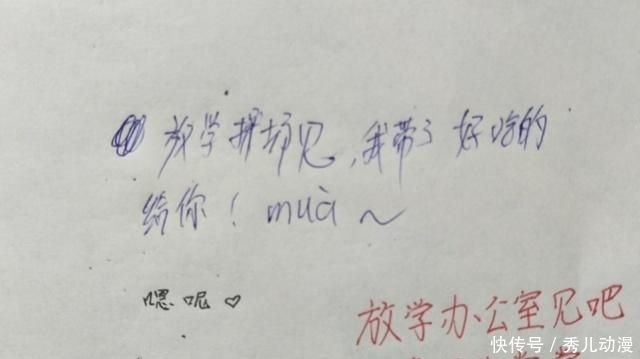 放学操场见，我带了好吃的
给你！muà～
嗯呢♡
放学办公室见吧
快传号／秀儿动漫